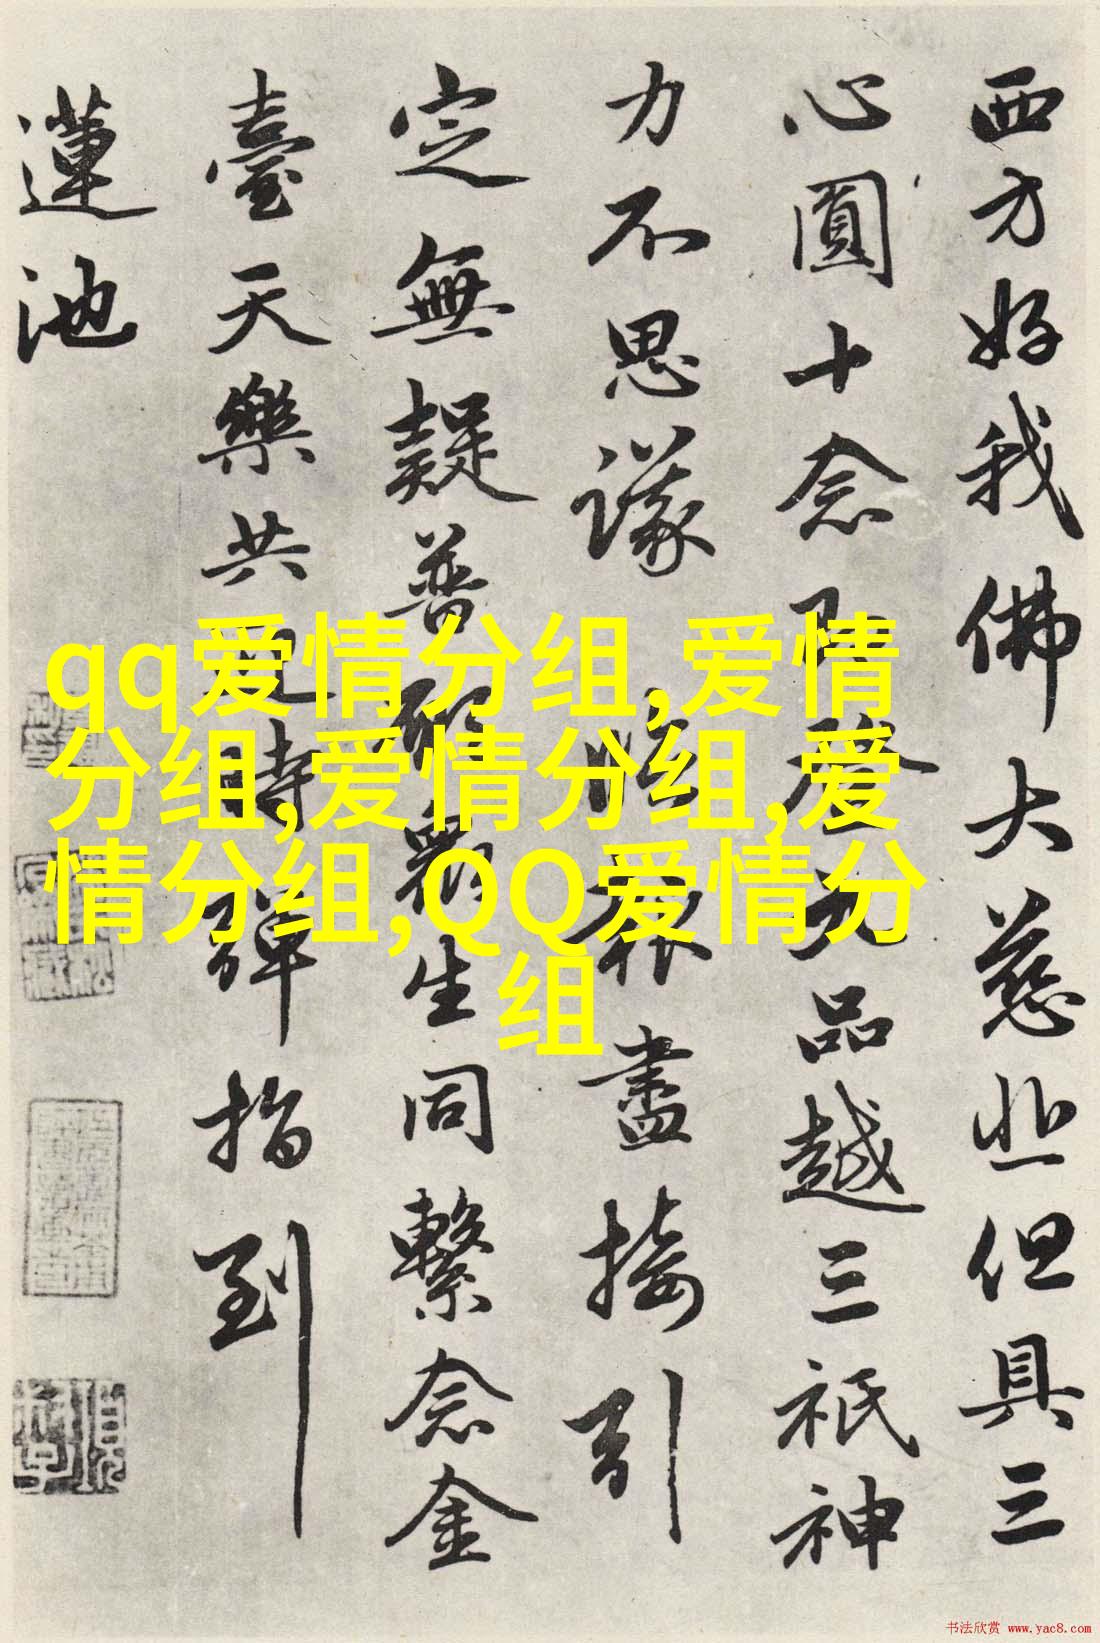 西方好我佛大慈悲但具三
心圓十念即登九品越三祇神
力不思議 臨報盡接引
定無疑普願眾生同繫念金
臺天樂共迎時彈指到
蓮池
qq爱情分组,爱情
分组,爱情分组,爱
情分组,QQ爱情分
组
书法欣赏 www.yac8.com